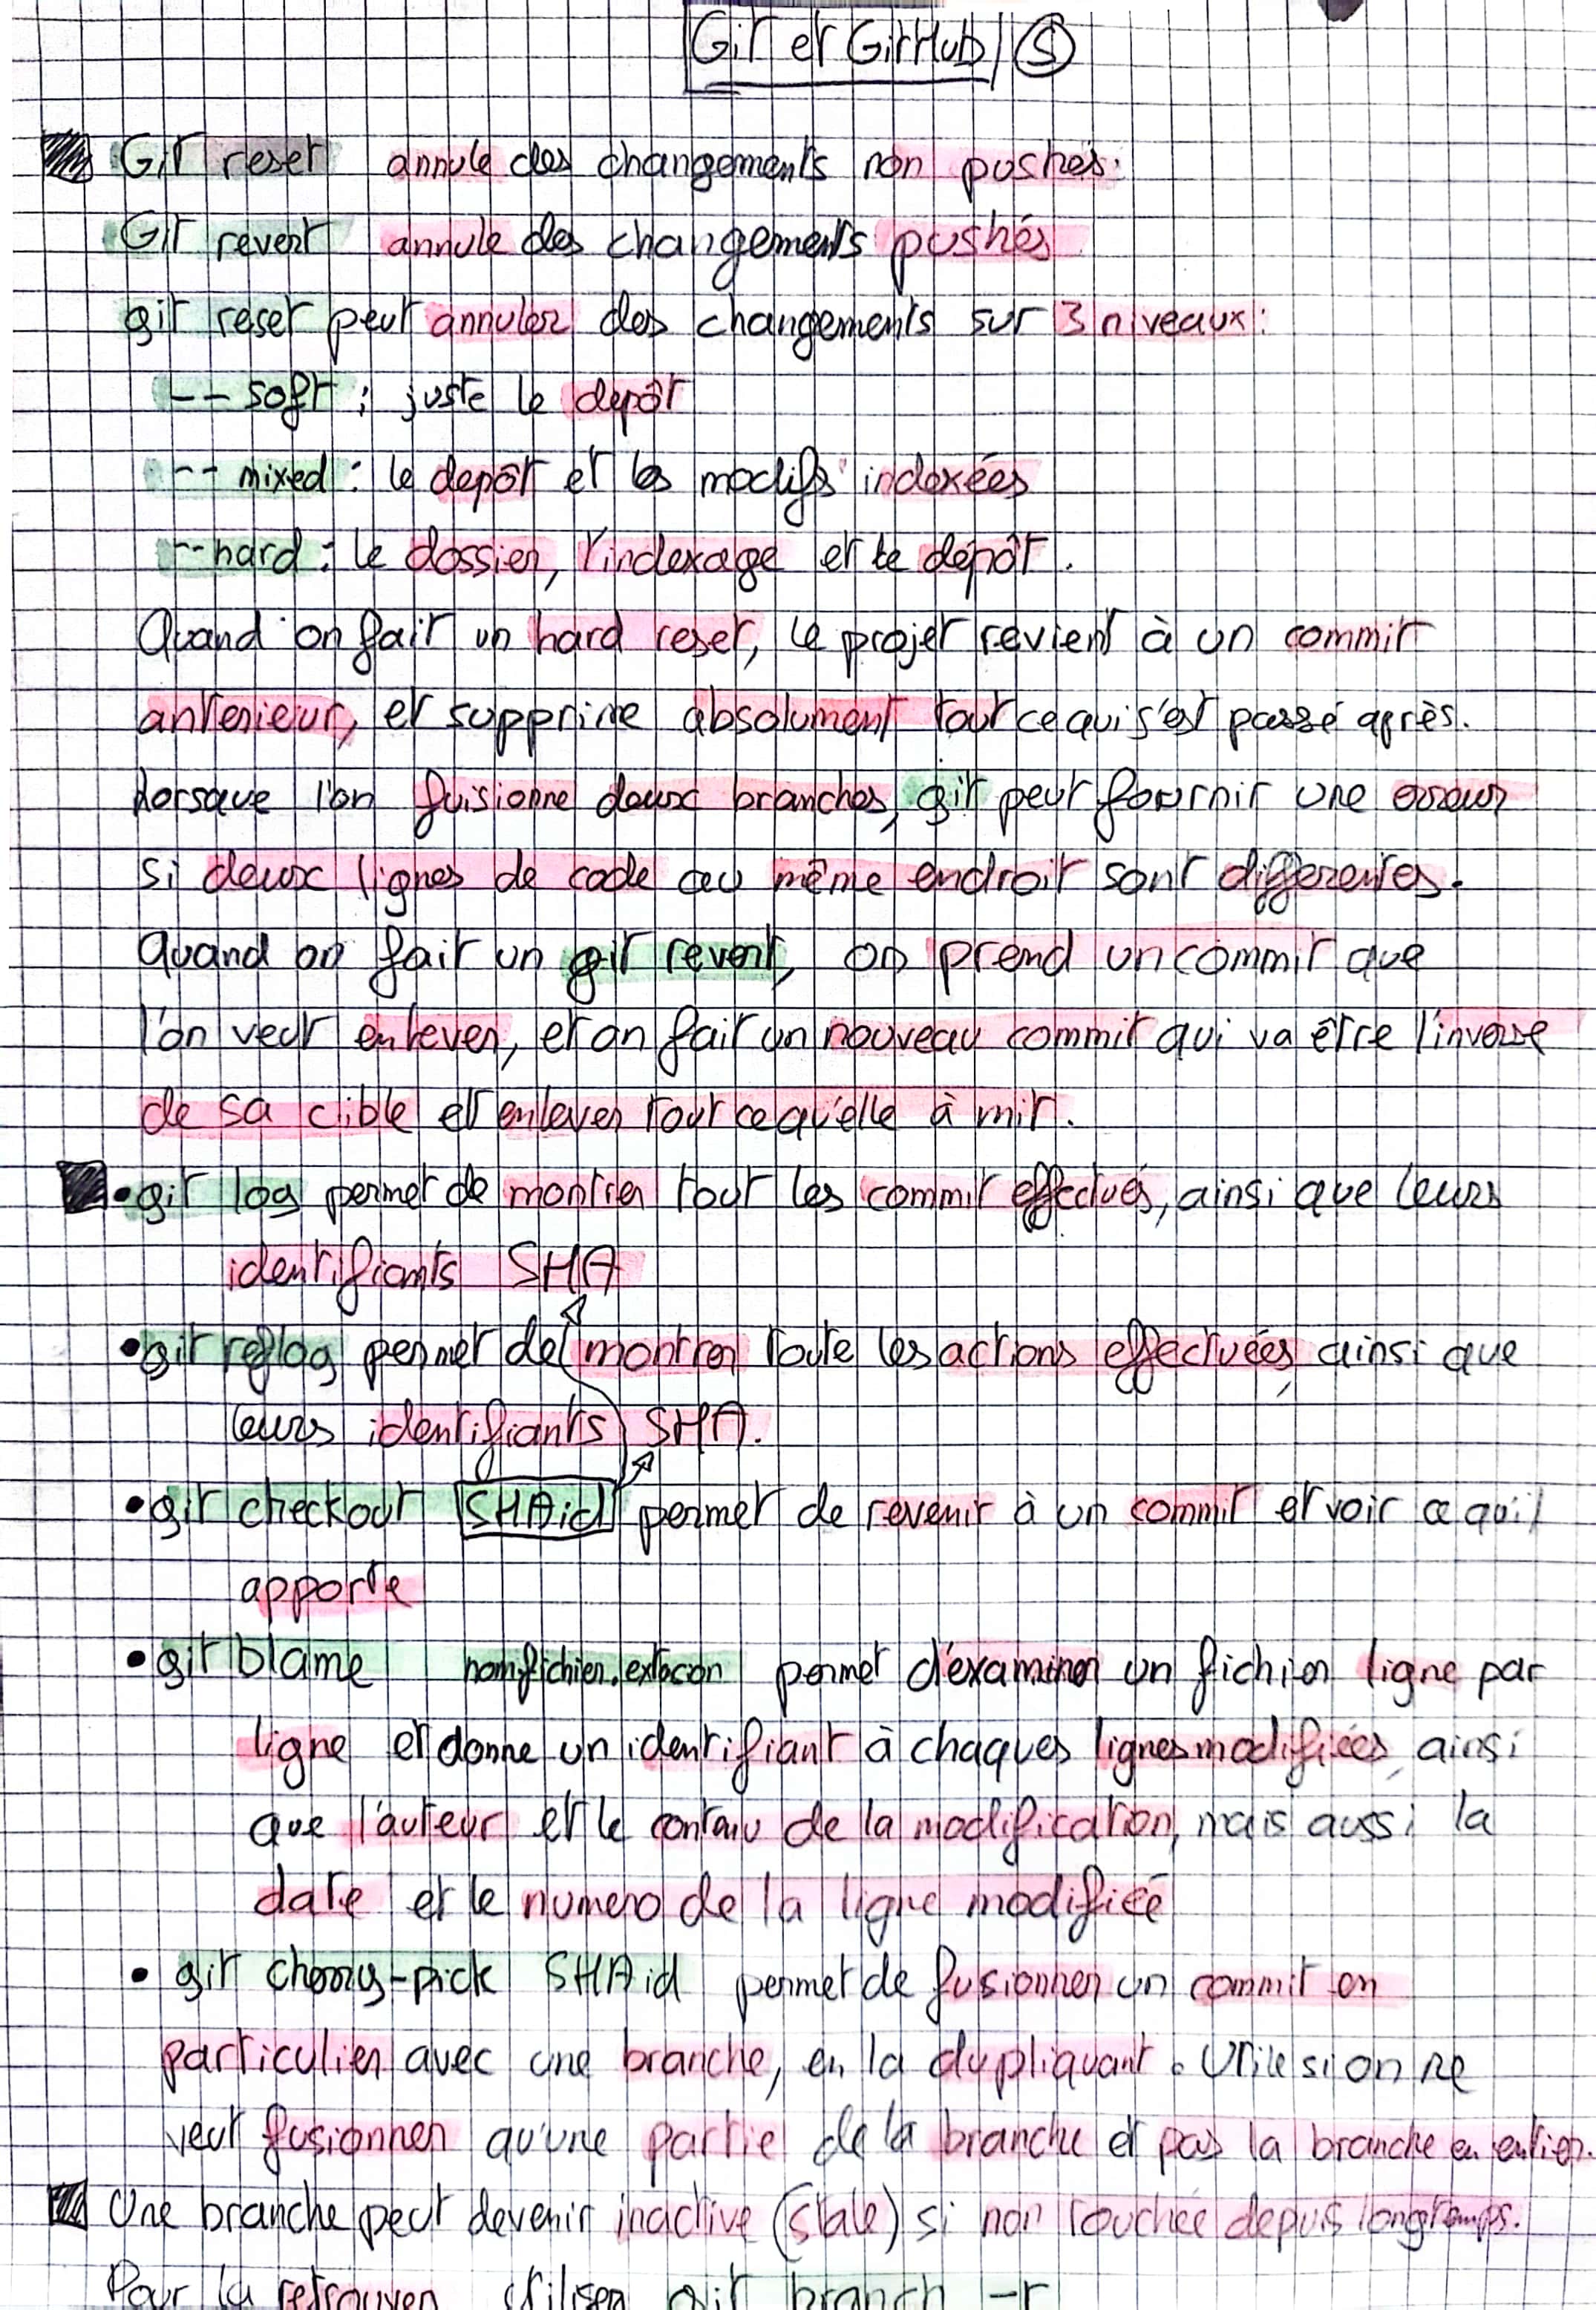 Git et GitHub 5
Git reset annule des changements non pushés.
Git revert annule des changements pushés
git reset peut annuler des changements sur 3 niveaux :
-- soft : juste le depôt
-- mixed : le depôt et les modifs indexées
--hard : le dossier, l'indexage et le dépôt.
Quand on fait un hard reset, le projet revient à un commit
anterieur, et supprime absolument tout ce qui s'est passé après.
Lorsque l'on fuisionne deux branches, git peut fournir une erreur
si deux lignes de code au même endroit sont differentes.
Quand on fait un git revert, on prend un commit que
l'on veut enlever, et on fait un nouveau commit qui va être l'inverse
de sa cible et enlever tout ce qu'elle à mit.
• git log permet de montrer tout les commit effectués, ainsi que leurs
identifiants SHA
• git reflog permet de montrer toute les actions effectuées, ainsi que
leurs identifiants SHA.
• git checkout SHAid permet de revenir à un commit et voir ce qu'il
apporte
• git blame nomfichier. permet d'examiner un fichier ligne par
ligne et donne un identifiant à chaques lignes modifiées, ainsi
que l'auteur et le contenu de la modification, mais aussi la
date et le numero de la ligne modifiée
• git cherry-pick SHAid permet de fusionner un commit en
particulier avec une branche, en la dupliquant. Utile si on ne
veut fusionner qu'une partie de la branche et pas la branche en entier.
Une branche peut devenir inactive (stale) si non touchée depuis longtemps.
Pour la retrouver utiliser git branch -r